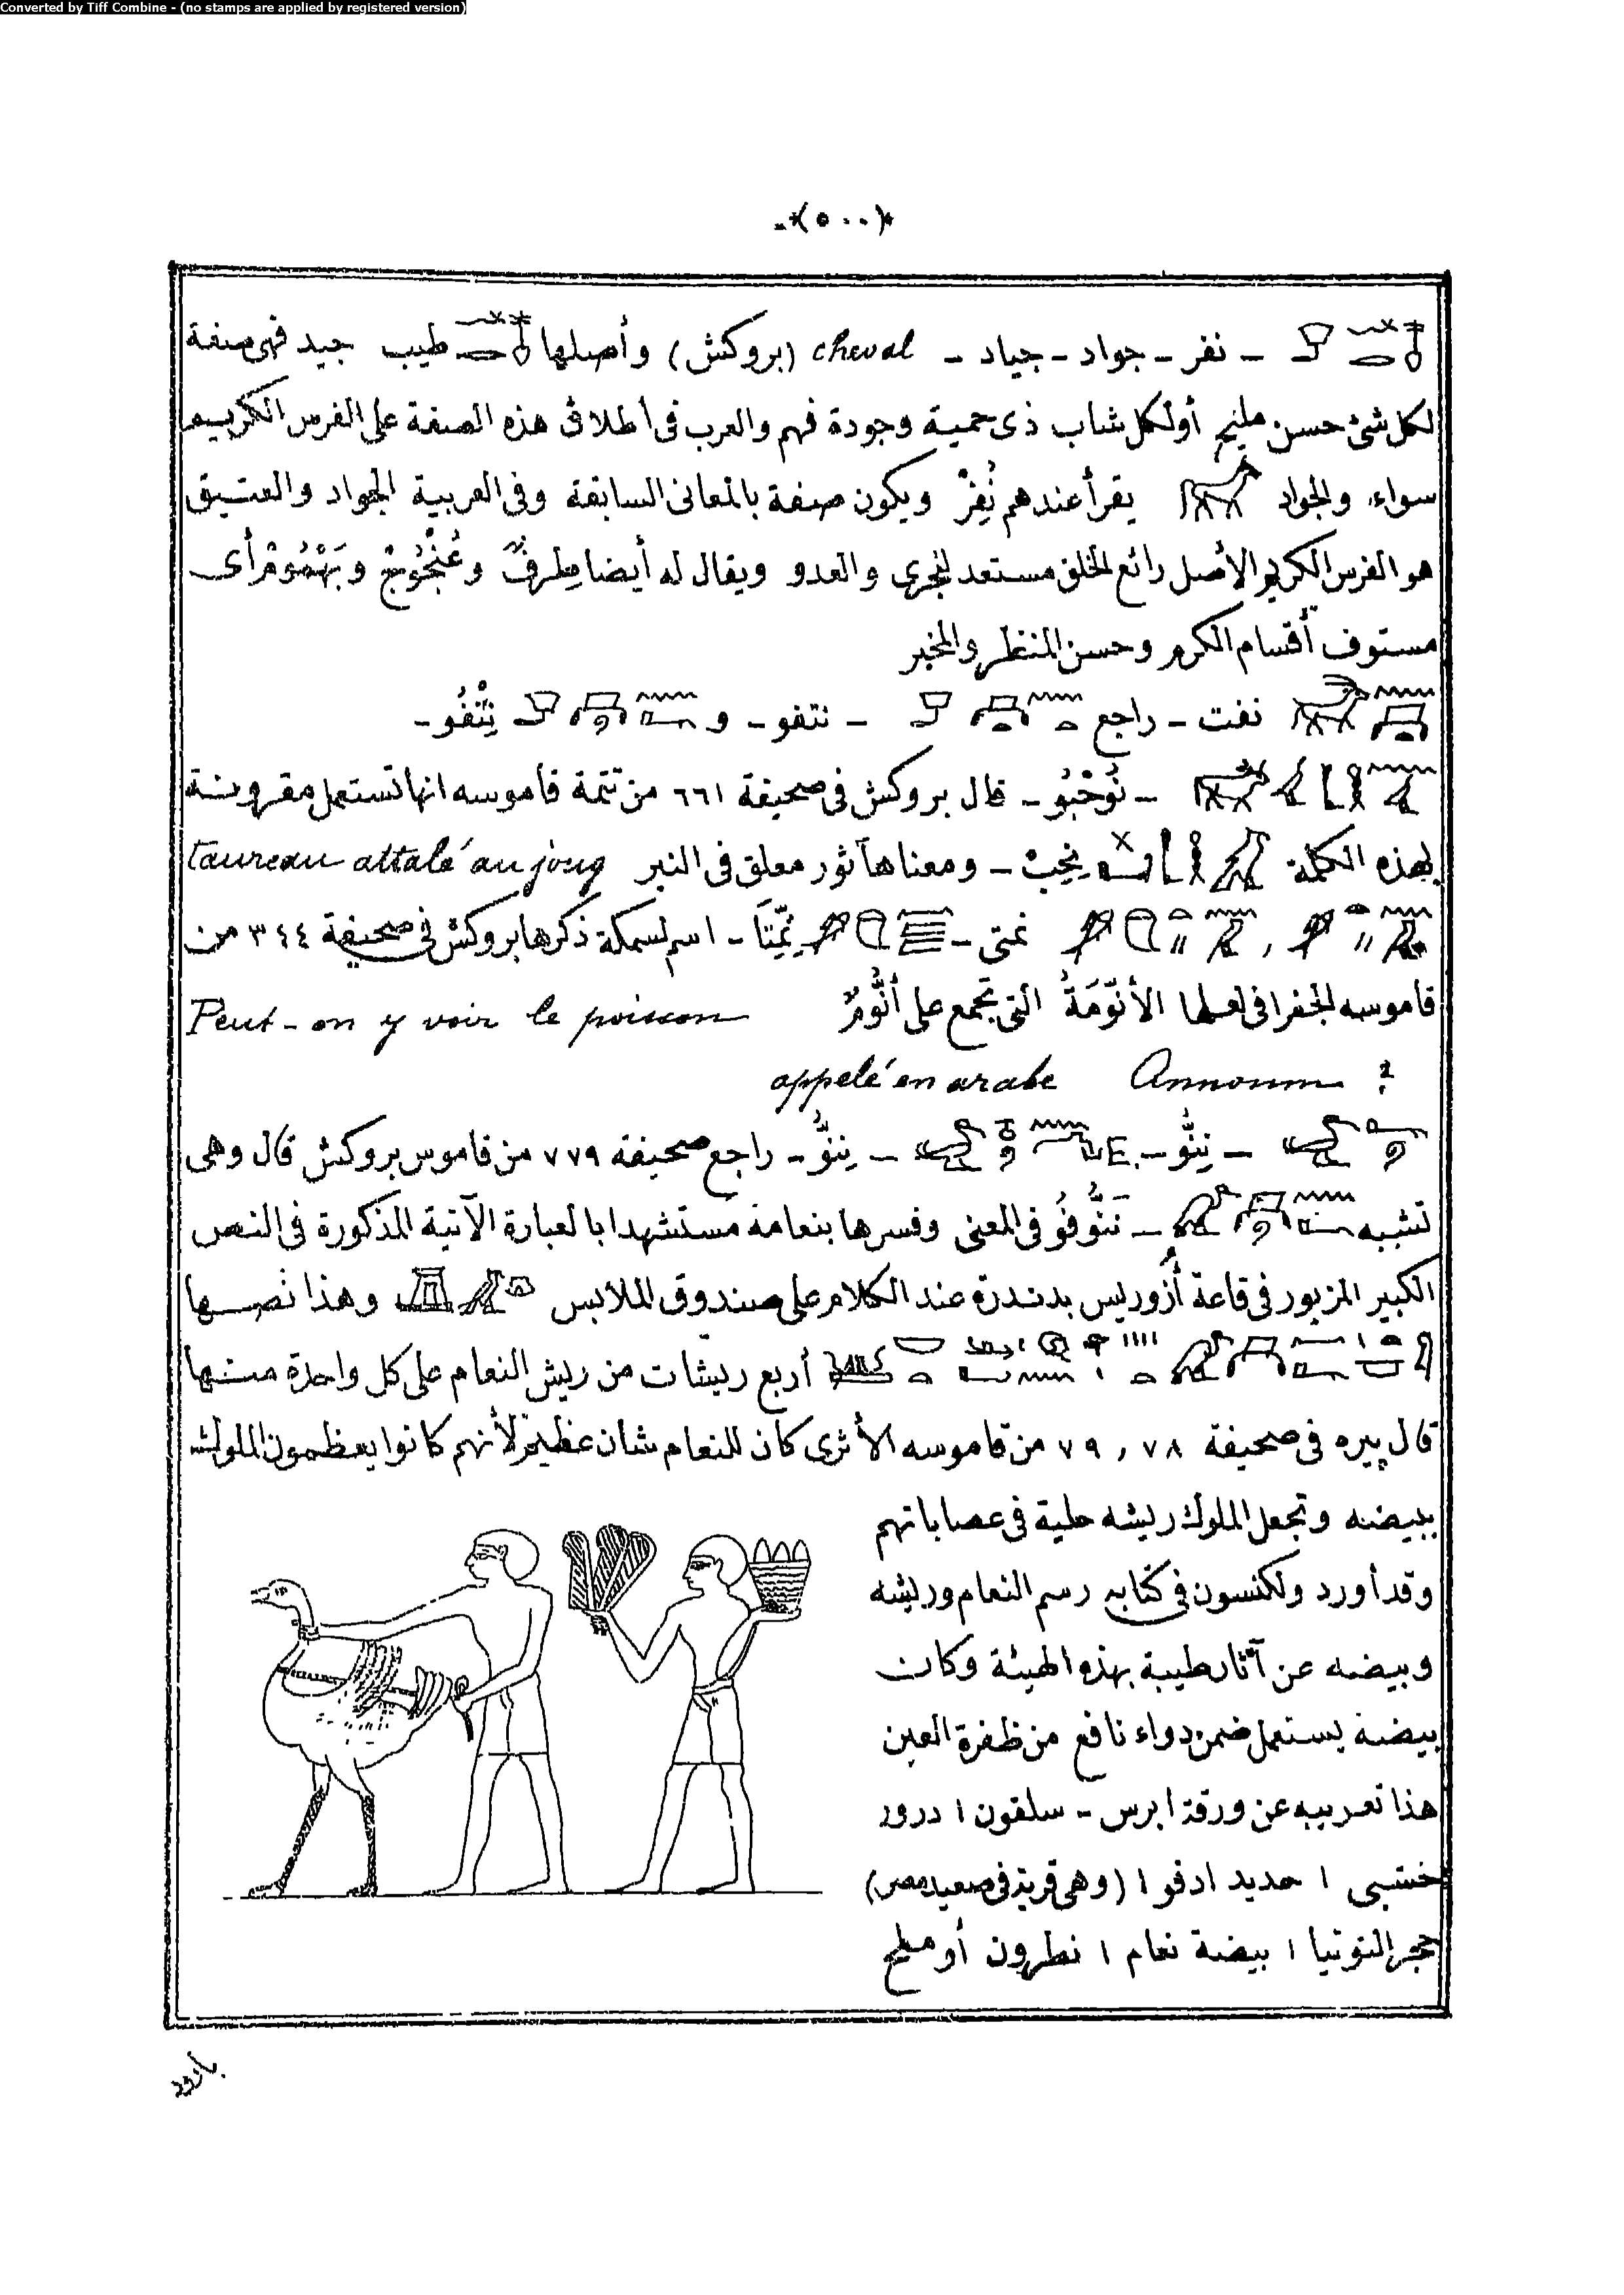 Converted by Tiff Combine - (no stamps are applied by registered version)
(٥٠٠)
- نفر - جواد - جياد - cheval (بروكش) وأصلها طيب جيد فهى صفة
لكل شئ حسن مليح أولكل شاب ذى حمية وجودة فهم والعرب فى أطلاق هذه الصفة على الفرس الكريم
سواء والجواد يقرأ عندهم نُفِرْ ويكون صفة بالمعانى السابقة وفى العربية الجواد والعتيق
هو الفرس الكريم الأصل رائع الخلق مستعد للجرى والعدو ويقال له أيضا طرف وعُنْجُوج وبَهْمُوم أى
مستوف أقسام الكرم وحسن المنظر والمخبر
نفت - راجع - نتفو - و نِتْفُو -
- نُوحْبُو - قال بروكش فى صحيفة ٦٦١ من تتمة قاموسه انها تستعمل مقرونة
بهذه الكلمة نِحِبْ - ومعناها ثور معلق فى النير taureau attalé au joug
, نمتى - نِمّتَا - اسم لسمكة ذكرها بروكش فى صحيفة ٣٤٤ من
قاموسه الجغرافى لعلها الأنّومَةُ التى تجمع على أنُّومٌ Peut-on y voir le poisson
appelé en arabe Annoum ?
- نِنُّو - - نِنُّو - راجع صحيفة ٧٧٩ من قاموس بروكش قال وهى
تشبه - نَنُّوفُو فى المعنى وفسرها بنعامة مستشهدا بالعبارة الآتية المذكورة فى النص
الكبير المزبور فى قاعة أزوريس بدندرة عند الكلام على صندوق الملابس وهذا نصها
أربع ريشات من ريش النعام على كل واحدة منها
قال پيره فى صحيفة ٧٨ , ٧٩ من قاموسه الأثرى كان للنعام شان عظيم لأنهم كانوا يعظمون الملوك
ببيضه وتجعل الملوك ريشه حلية فى عصاباتهم
وقد أورد ولكنسون فى كتابه رسم النعام وريشه
وبيضه عن آثار طيبة بهذه الهيئة وكان
بيضه يستعمل ضمن دواء نافع من ظفرة العين
هذا تعريبه عن ورقة ابرس - سلقون ١ درور
خشبى ١ حديد ادفو ١ (وهى قرية فى صعيد مصر)
حجر التوتيا ١ بيضة نعام ١ نطرون أو ملح